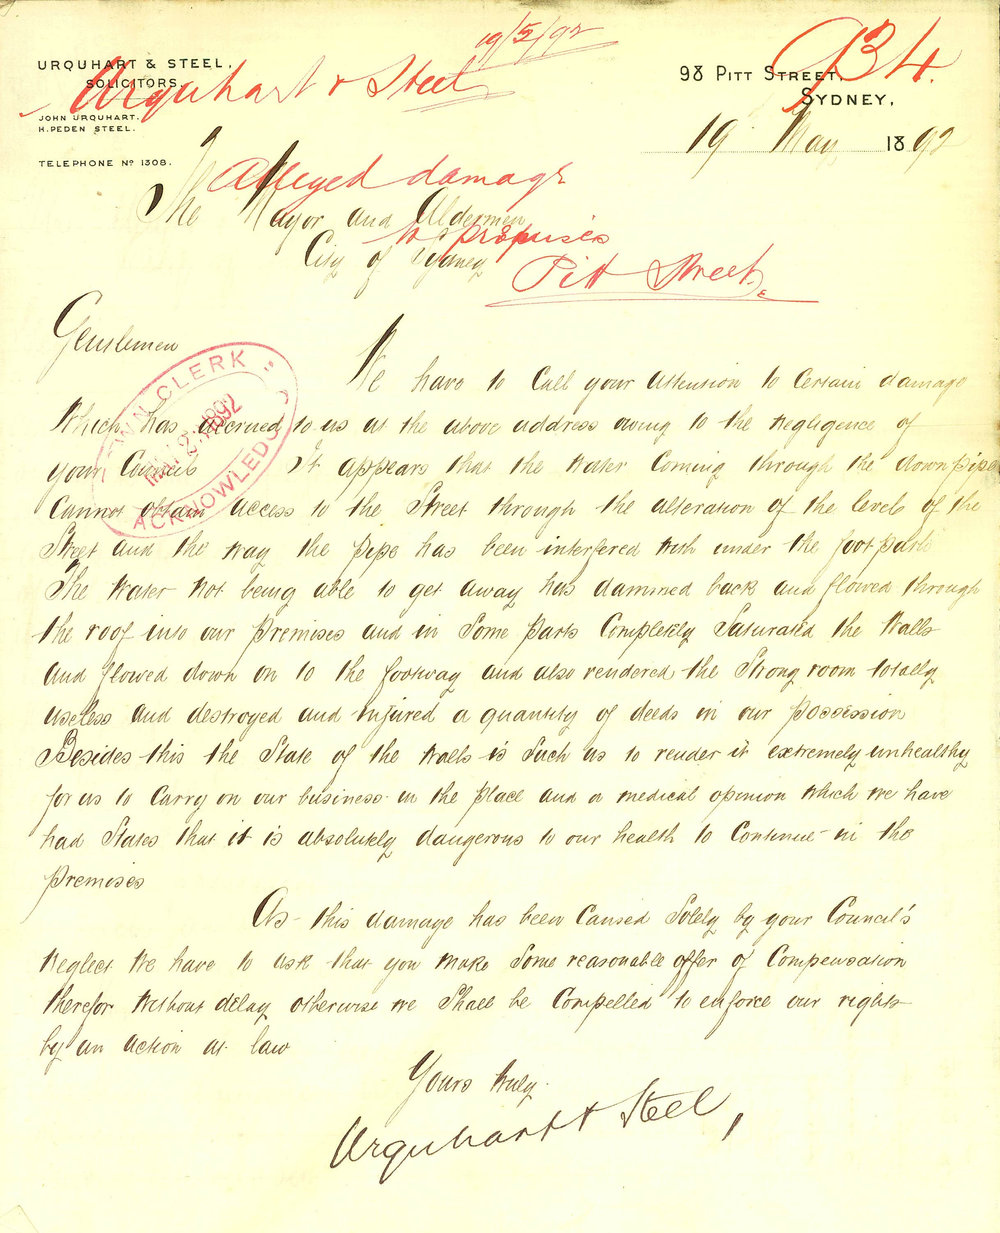 19/5/92
934.
URQUHART & STEEL,
SOLICITORS.
Urquhart & Steel
JOHN URQUHART.
H. PEDEN STEEL.
TELEPHONE Nº 1308.
98 PITT STREET,
SYDNEY,
19 May 1892
Alleged damage
to premises
Pitt Street
The Mayor and Aldermen
City of Sydney
Gentlemen
TOWN CLERK'S
1892
ACKNOWLEDG
We have to call your attention to certain damage
which has accrued to us at the above address owing to the negligence of
your Council It appears that the water coming through the down pipe
cannot obtain access to the Street through the alteration of the levels of the
Street and the way the pipe has been interfered with under the footpath
The water not being able to get away has dammed back and flowed through
the roof into our premises and in some parts completely saturated the walls
and flowed down on to the footway and also rendered the Strong room totally
useless and destroyed and injured a quantity of deeds in our possession
Besides this the State of the walls is such as to render it extremely unhealthy
for us to carry on our business in the place and a medical opinion which we have
had States that it is absolutely dangerous to our health to continue in the
premises
As this damage has been caused solely by your Council's
neglect we have to ask that you make some reasonable offer of compensation
therefor without delay otherwise we shall be compelled to enforce our rights
by an action at law
Yours truly
Urquhart & Steel,